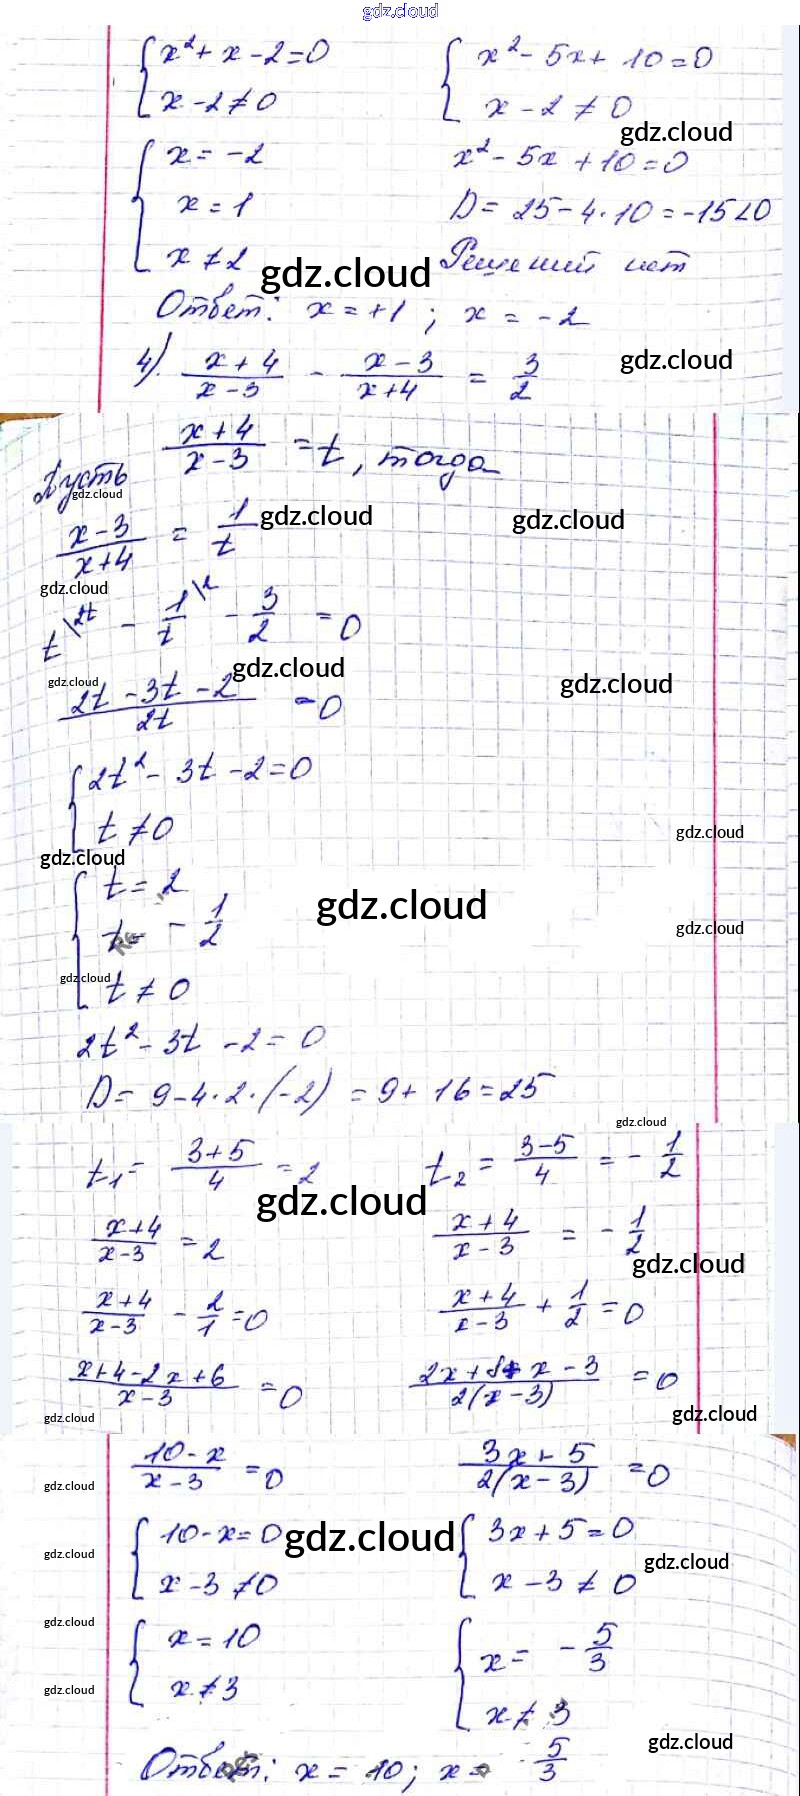 gdz.cloud
x² + x - 2 = 0
x - 2 ≠ 0
x² - 5x + 10 = 0
x - 2 ≠ 0
gdz.cloud
x = -2
x = 1
x ≠ 2
x² - 5x + 10 = 0
D = 25 - 4·10 = -15 < 0
Решений нет
gdz.cloud
Ответ: x = +1 ; x = -2
4). (x + 4)/(x - 3) - (x - 3)/(x + 4) = 3/2
gdz.cloud
Пусть (x + 4)/(x - 3) = t, тогда
gdz.cloud
(x - 3)/(x + 4) = 1/t
gdz.cloud
gdz.cloud
gdz.cloud
t\2t - 1/t\2 - 3/2 = 0
gdz.cloud
gdz.cloud
gdz.cloud
(2t - 3t - 2)/2t = 0
2t² - 3t - 2 = 0
t ≠ 0
gdz.cloud
gdz.cloud
t = 2
t = - 1/2
t ≠ 0
gdz.cloud
gdz.cloud
gdz.cloud
2t² - 3t - 2 = 0
D = 9 - 4·2·(-2) = 9 + 16 = 25
gdz.cloud
t₁ = (3 + 5)/4 = 2
t₂ = (3 - 5)/4 = - 1/2
gdz.cloud
(x + 4)/(x - 3) = 2
(x + 4)/(x - 3) = - 1/2
gdz.cloud
(x + 4)/(x - 3) - 2/1 = 0
(x + 4)/(x - 3) + 1/2 = 0
(x + 4 - 2x + 6)/(x - 3) = 0
(2x + 8 + x - 3)/(2(x - 3)) = 0
gdz.cloud
gdz.cloud
(10 - x)/(x - 3) = 0
(3x + 5)/(2(x - 3)) = 0
gdz.cloud
10 - x = 0
x - 3 ≠ 0
gdz.cloud
3x + 5 = 0
x - 3 ≠ 0
gdz.cloud
gdz.cloud
gdz.cloud
x = 10
x ≠ 3
x = - 5/3
x ≠ 3
gdz.cloud
gdz.cloud
Ответ: x = 10; x = - 5/3